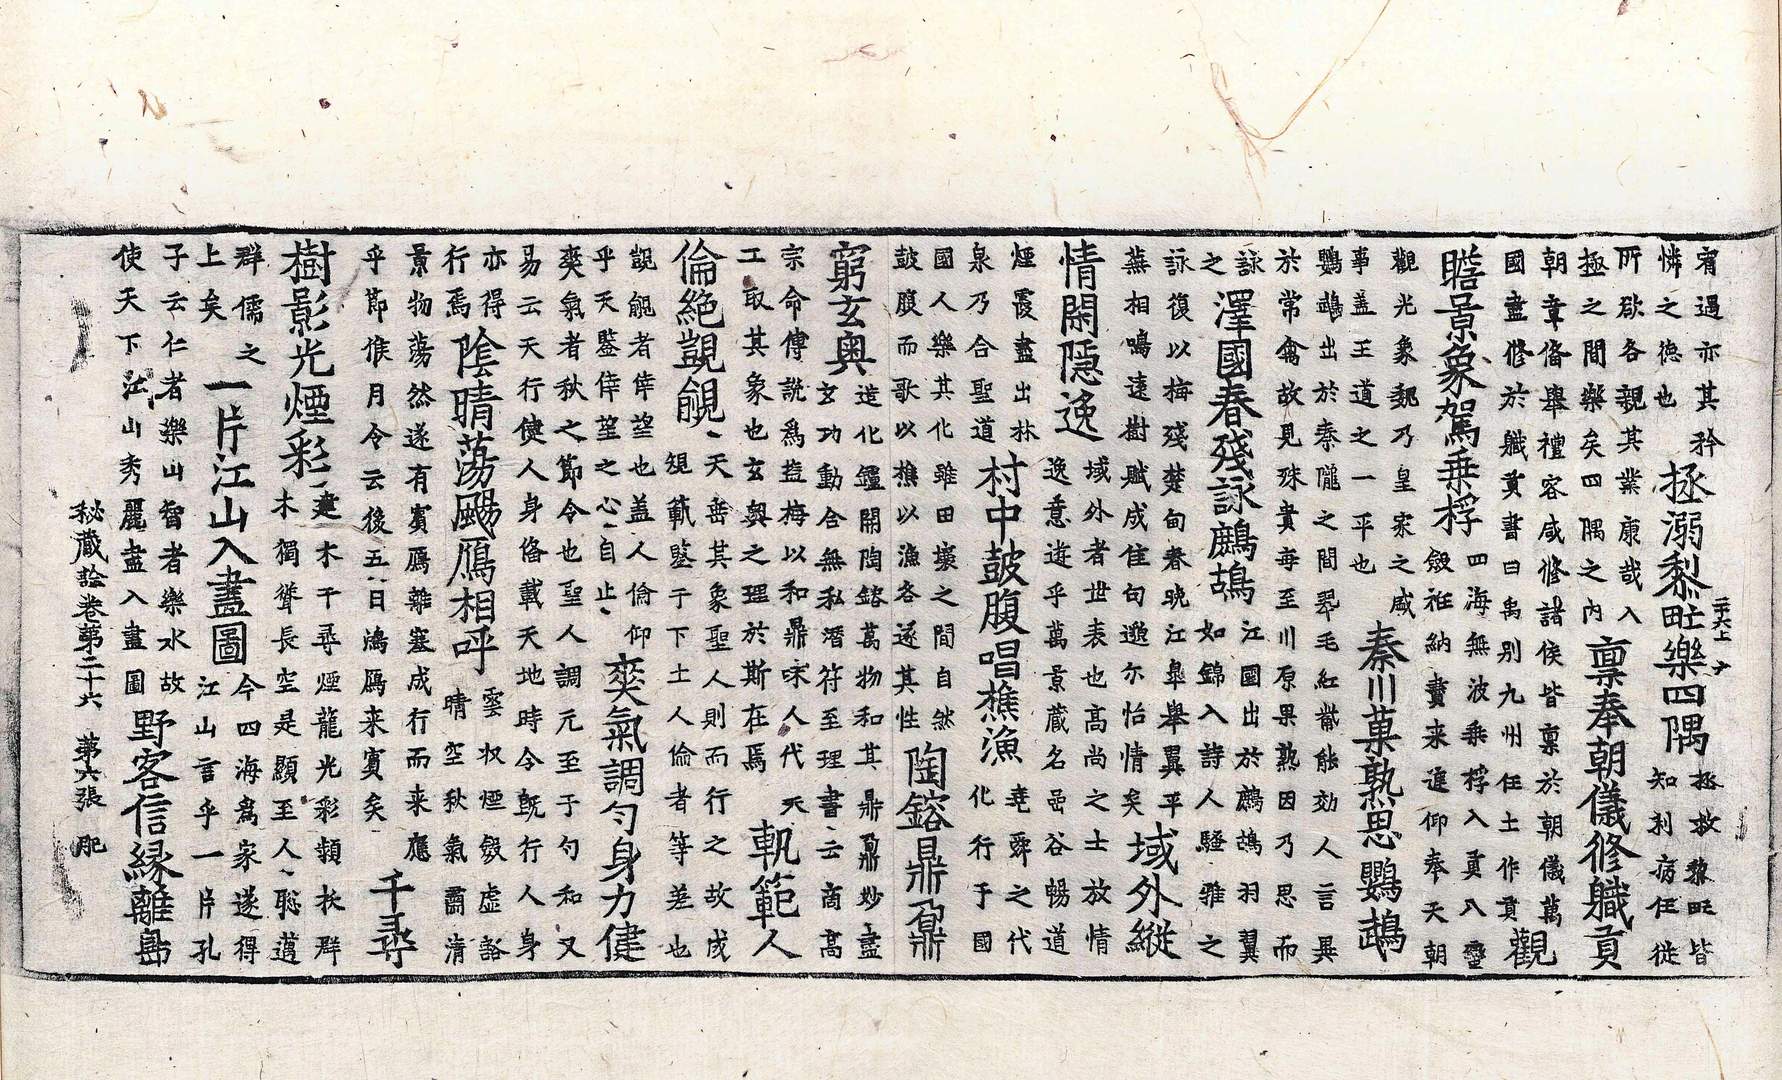 宥過亦其矜
憐之德也
拯溺黎甿樂四隅
拯救黎甿皆
知利病任從
所欲各親其業康哉入
極之間樂矣四隅之內
稟奉朝儀修職貢
朝章俻舉禮容咸修諸侯皆稟於朝儀萬
國盡修於職貢書曰禹別九州任土作貢
觀
瞻景象駕乗桴
四海無波乗桴入貢八蠻
斂袵納賮来進仰奉天朝
觀光象魏乃皇家之咸
事盖王道之一平也
秦川菓熟思鸚鵡
鸚鵡出於秦隴之間翠毛紅觜能効人言異
於常禽故見殊貴每至川原果熟因乃思而
詠
之
澤國春殘詠鷓鴣
江國出於鷓鴣羽翼
如錦入詩人騷雅之
詠復以梅殘楚甸春晩江皐舉翼平
蕪相鳴遠樹賦成佳句邀尓怡情矣
域外縱
情閑隱逸
域外者世表也髙尚之士放情
逸意遊乎萬景蔵名嵒谷暢道
煙霞盡出林
泉乃合聖道
村中鼓腹唱樵漁
堯舜之代
化行于國
國人樂其化雖田壤之間自然
鼓腹而歌以樵以漁各遂其性
陶鎔鼎鼐
窮玄奥
造化鑪開陶鎔萬物和其鼎鼐妙盡
玄功動合無私潛符至理書云商髙
宗命傅說爲塩梅以和鼎味人代天
工取其象也玄奥之理於斯在焉
軌範人
倫絶覬覦
天垂其象聖人則而行之故成
規軌鑒于下土人倫者等差也
覬覦者倖望也盖人倫仰
乎天鑒倖望之心自止
奕氣調匀身力健
奕氣者秋之節令也聖人調元至于匀和又
易云天行使人身俻載天地時令既行人身
亦得
行焉
陰晴蕩颺鴈相呼
雲収煙斂虚豁
晴空秋氣霽清
景物蕩然遂有賓鴈離塞成行而来應
乎節候月令云後五日鴻鴈来賓矣
千尋
樹影光煙彩
建木千尋煙龍光彩頻扶群
木獨聳長空是顯至人恥邁
群儒之
上矣
一片江山入畫圖
今四海爲家遂得
江山言乎一片孔
子云仁者樂山智者樂水故
使天下江山秀麗盡入畫圖
野客信縁離島
秘藏詮卷第二十六 第六張 肥